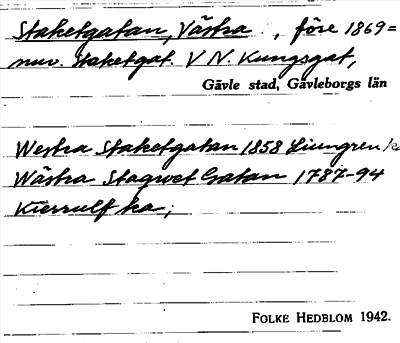 Staketgatan, Västra , före 1869=
nuv. Staketgat. V N. Kungsgat,
Gävle stad, Gävleborgs län
Westra Staketgatan 1858 Ljungren ka
Wästra Stagwet Gatan 1787-94
Kierrulf ka;
FOLKE HEDBLOM 1942.